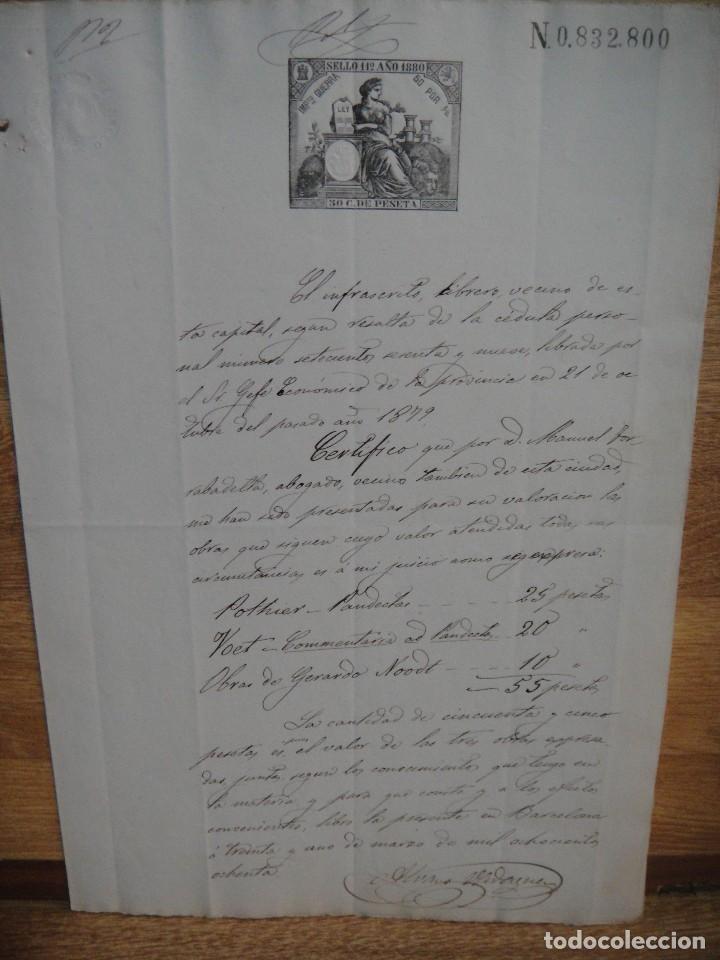 N.0.832.800
SELLO 11º AÑO 1880
IMPTO GUERRA 50 POR %
LEY
30 C. DE PESETA
El infrascrito, librero, vecino de es-
ta capital, segun resulta de la cédula perso-
nal número setecientos sesenta y nueve, librada por
el Sr. Gefe Económico de la provincia en 21 de oc-
tubre del pasado año 1879.
Certifico que por D. Manuel For-
rabadella, abogado, vecino tambien de esta ciudad,
me han sido presentadas para su valoracion las
obras que siguen cuyo valor atendidas todas sus
circunstancias es á mi juicio como se expresa:
Pothier – Pandectas - - - - 25 pesetas
Voet – Commentaria ad Pandectas - 20 "
Obras de Gerardo Noodt - - - - 10 "
55 pesetas
La cantidad de cincuenta y cinco
pesetas es el valor de las tres obras expresa-
das, juntas, segun los conocimientos que tengo en
la materia y para que conste y a los efectos
convenientes, libro la presente en Barcelona
á treinta y uno de marzo de mil ochocientos
ochenta.
Verdaguer
todocoleccion.net